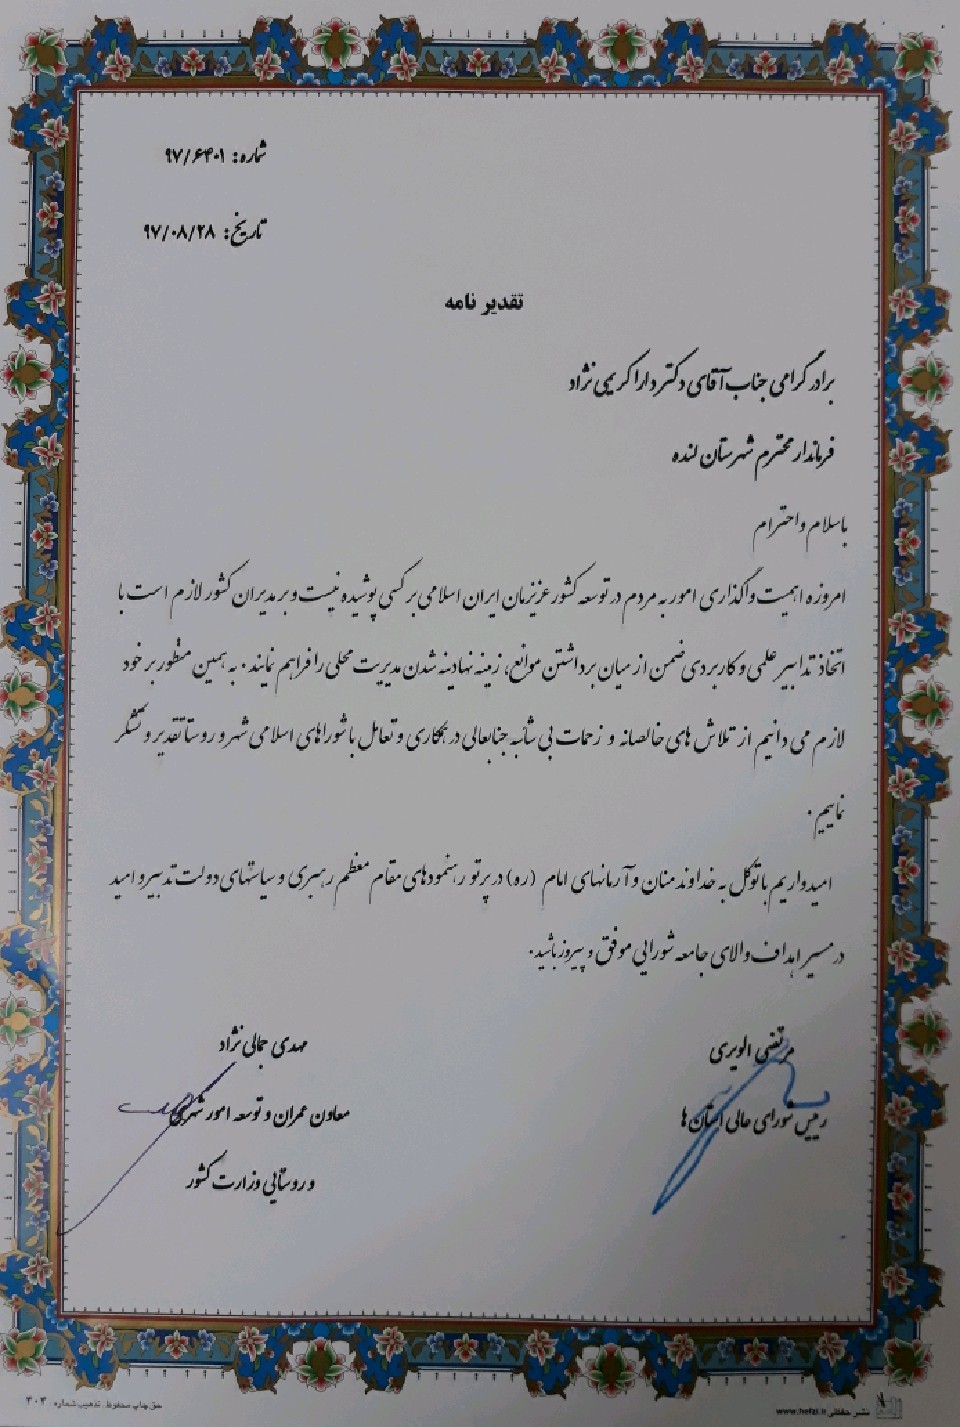 شماره: ۹۷/۶۴۰۱
تاریخ: ۹۷/۰۸/۲۸
تقدیر نامه
برادر گرامی جناب آقای دکتر دارا کریمی نژاد
فرماندار محترم شهرستان لنده
باسلام و احترام
امروزه اهمیت واگذاری امور به مردم در توسعه کشور عزیزمان ایران اسلامی بر کسی پوشیده نیست و بر مدیران کشور لازم است با
اتخاذ تدابیر علمی و کاربردی ضمن از میان برداشتن موانع، زمینه نهادینه شدن مدیریت محلی را فراهم نمایند. به همین منظور بر خود
لازم می دانیم از تلاش های خالصانه و زحمات بی شائبه جنابعالی در همکاری و تعامل با شوراهای اسلامی شهر و روستا تقدیر و تشکر
نماییم.
امیدواریم با توکل به خداوند منان و آرمانهای امام (ره) در پرتو رهنمودهای مقام معظم رهبری و سیاستهای دولت تدبیر و امید
در مسیر اهداف والای جامعه شورایی موفق و پیروز باشید.
مرتضی الویری
رییس شورای عالی استان ها
مهدی جمالی نژاد
معاون عمران و توسعه امور شهری
و روستایی وزارت کشور
نشر حفظی www.hefzi.ir
حق چاپ محفوظ. تذهیب شماره ۴۰۴